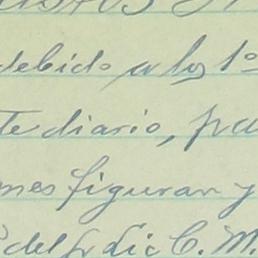 debido a los 1º
te diario, pa
nes figuran y
del fr Lic C. M.